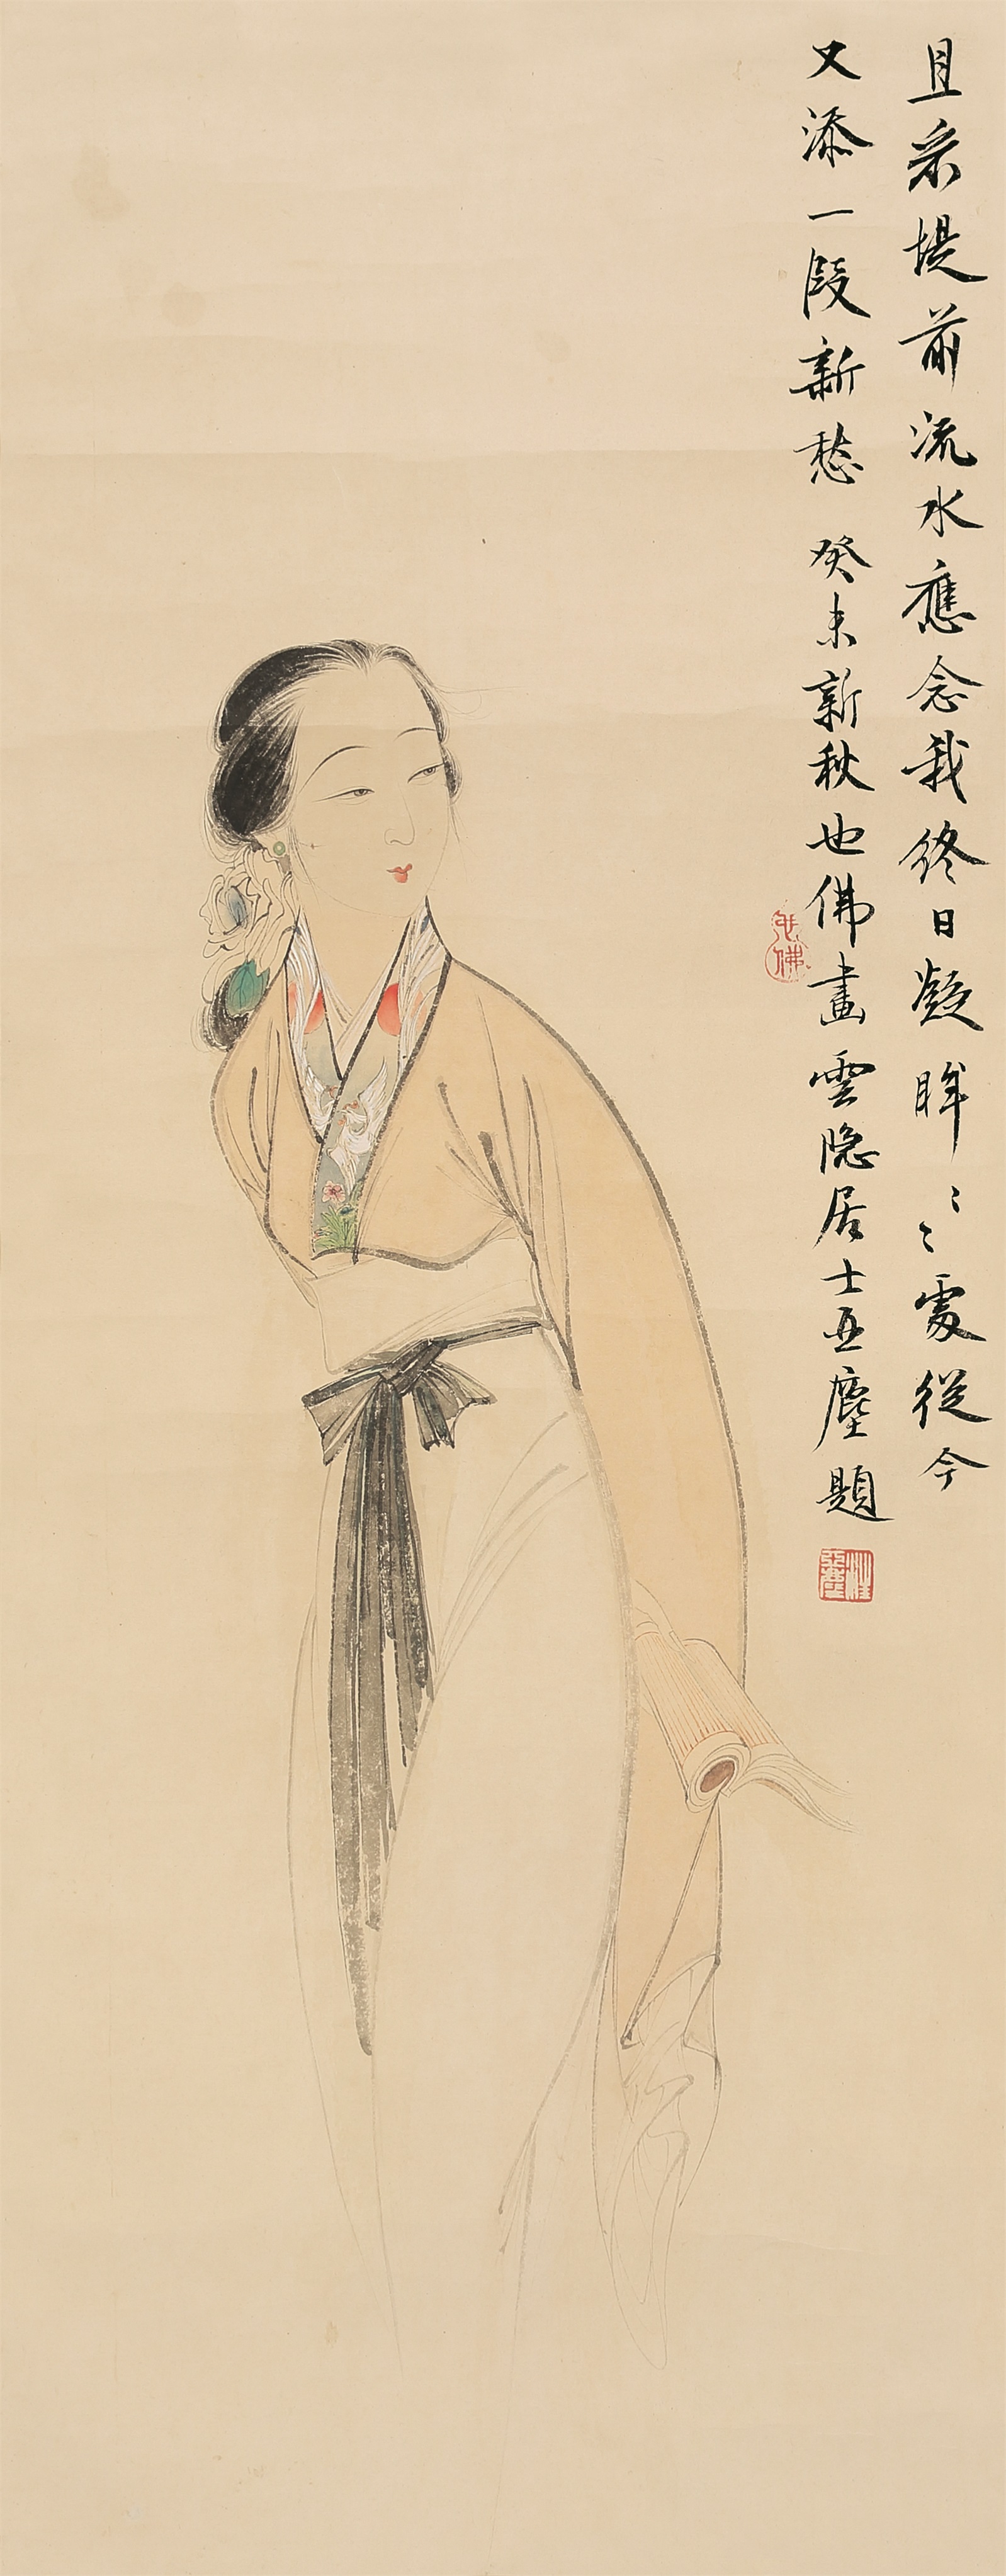 且采堤前流水應念我終日凝眸〻〻處從今
又添一段新愁 癸未新秋也佛畫雲隐居士亞塵題
也佛
汪亞塵